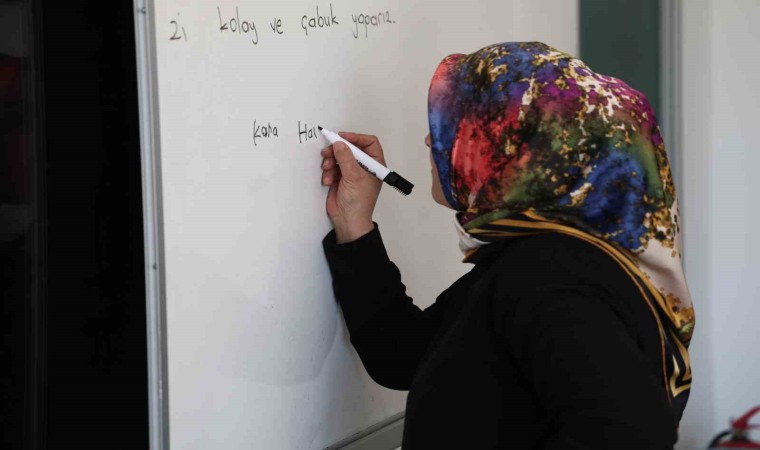 2'i kolay ve çabuk yaparız.
Kara Hav